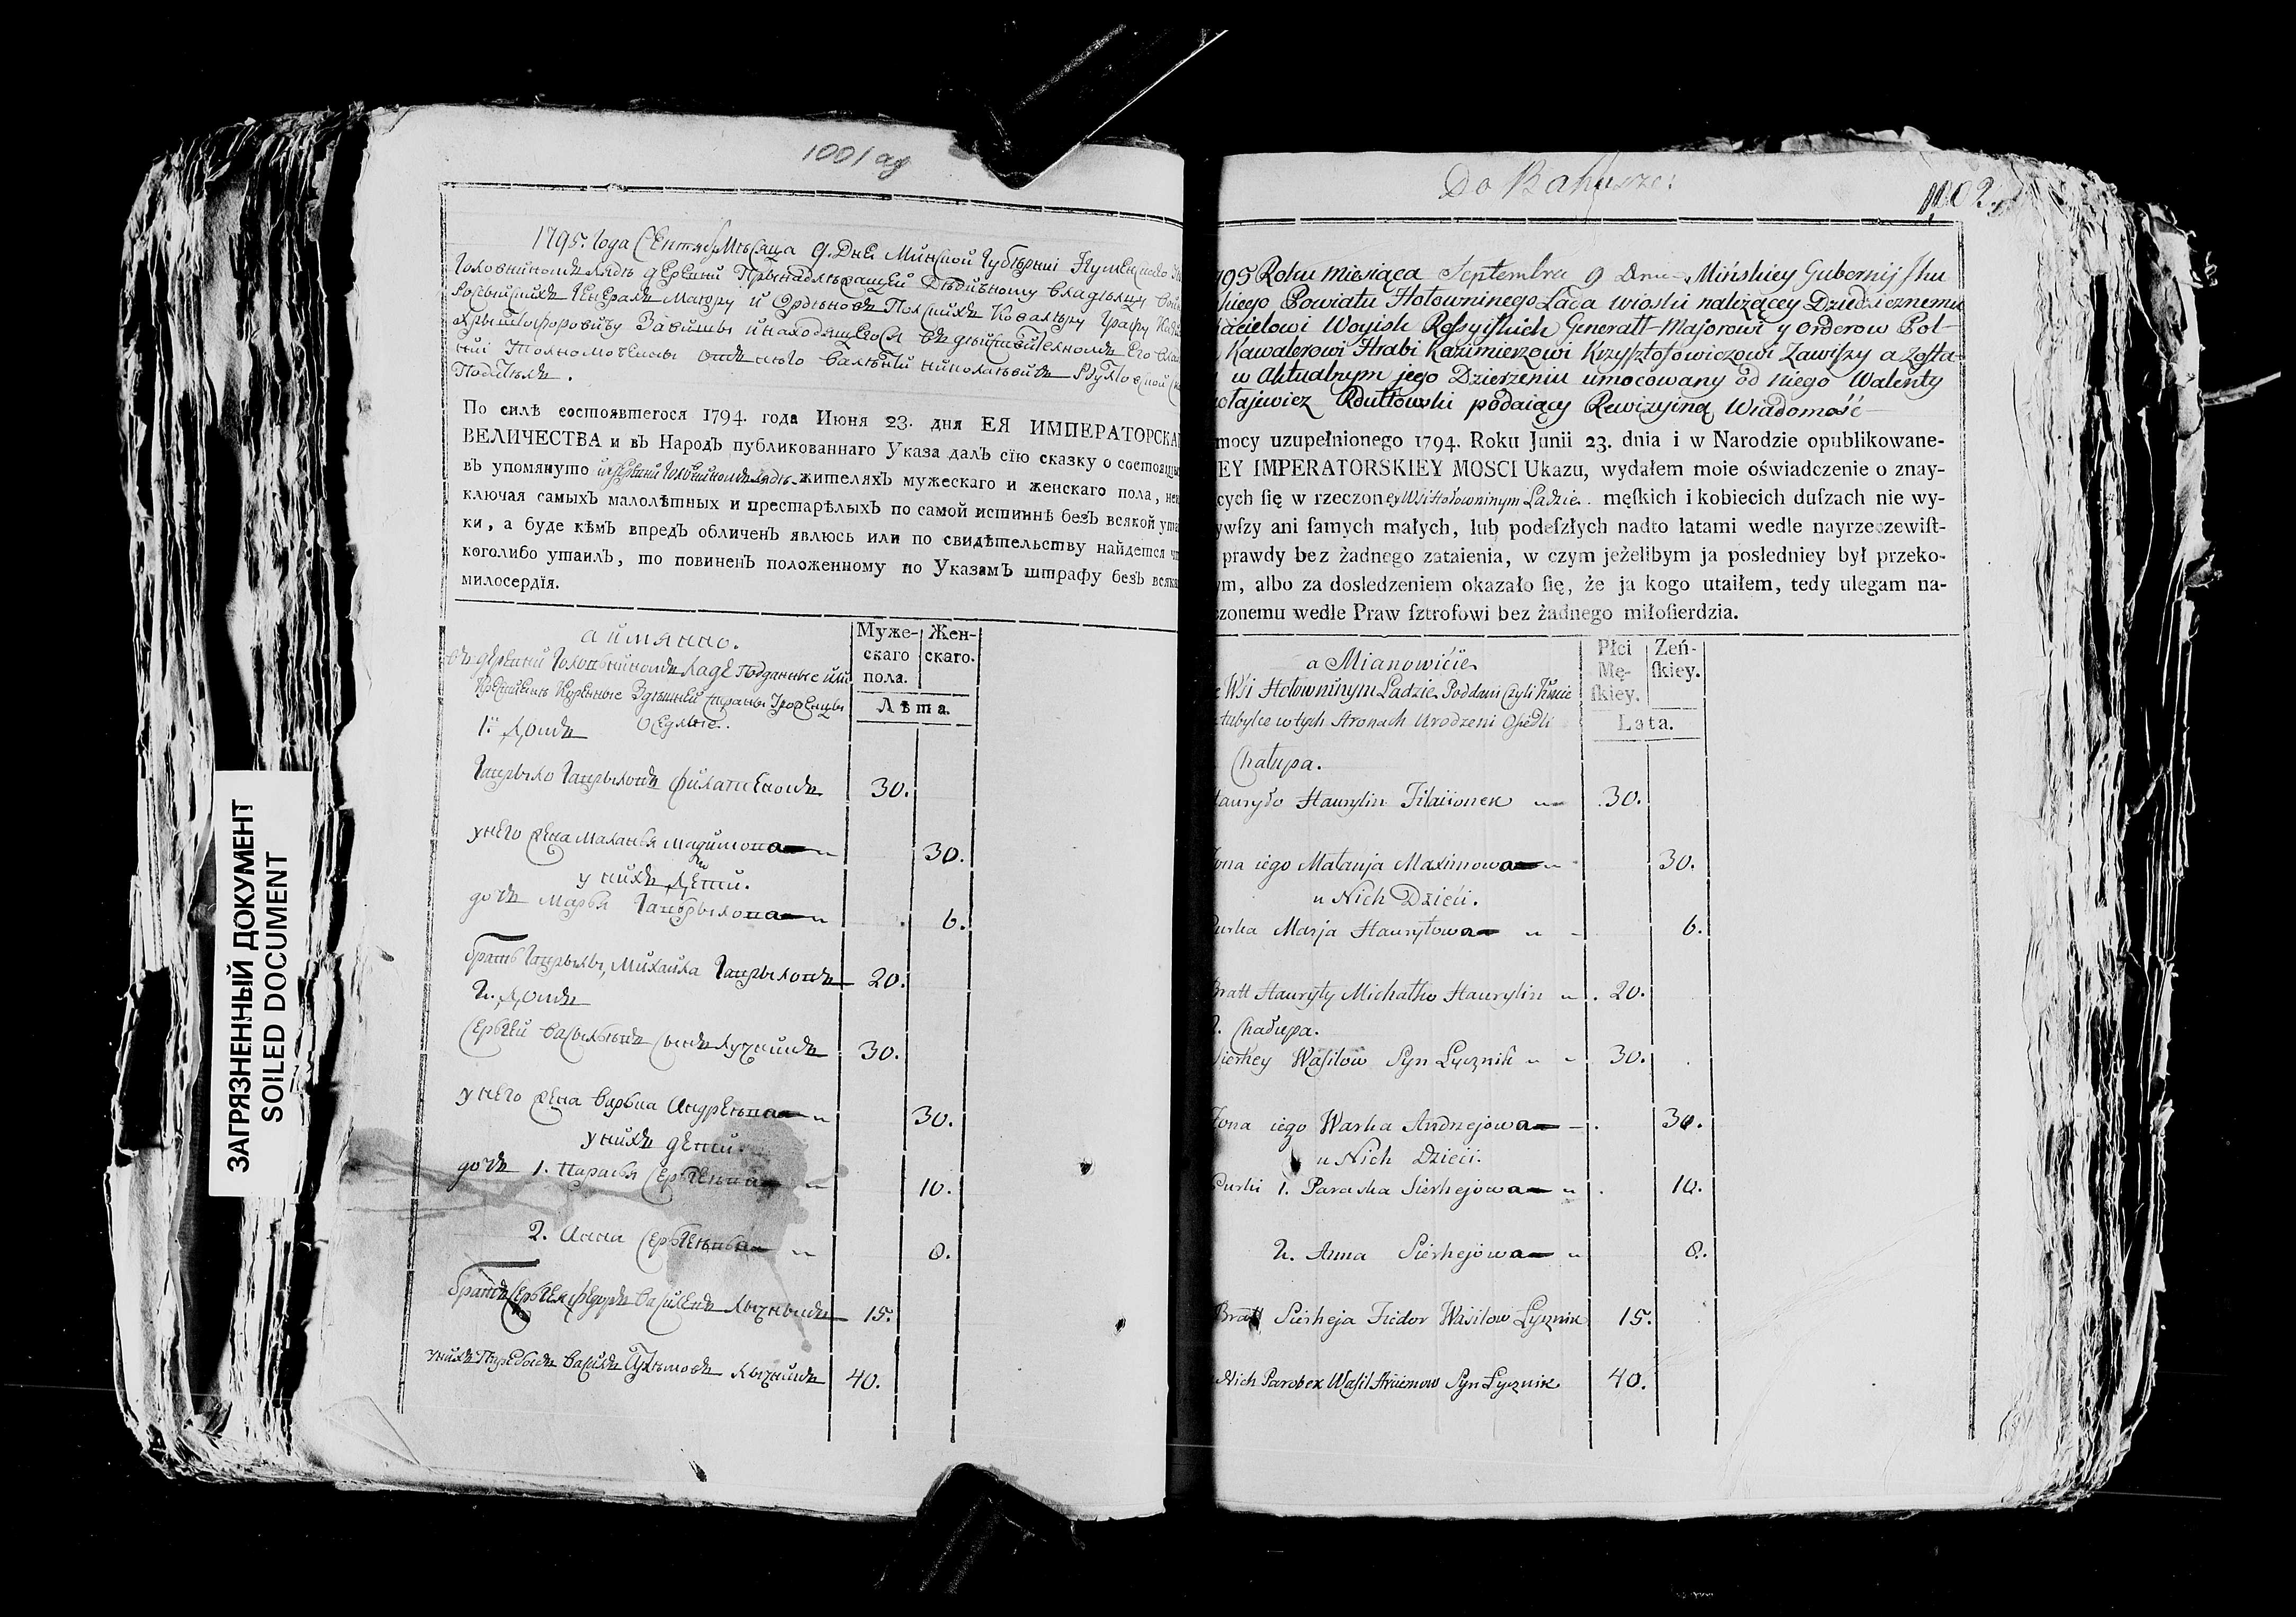 1001 об
1795. года Сентяб. Мѣсяца 9. Дня Минской Губернии Игуменского
Головниномъ лядѣ деревни Принадлежащей Дѣдичному владельцу
Россыйскихъ Генералъ Маиору и Орденовъ Польскихъ Ковалеру Графу
Крыштофоровичу Завишы и находящеюся въ дыйствительномъ Его
Полномоченны отъ него Валенты Николаевичъ
По силѣ состоявшегося 1794. года Июня 23. дня ЕЯ ИМПЕРАТОРСКА
ВЕЛИЧЕСТВА и въ Народъ публикованнаго Указа далъ сїю сказку о состоящи
въ упомянуто жителяхъ мужескаго и женскаго пола, не
ключая самыхъ малолѣтных и престарѣлыхъ по самой истиннѣ безъ всякой ута
ки, а буде кѣмъ впредъ обличенъ явлюсь или по свидѣтельству найдется ч
коголибо утаилъ, то повиненъ положенному по Указамъ штрафу безъ всяка
милосердїя.
а имянно.
Муже-
скаго
пола.
Жен-
скаго.
Лѣта.
въ деревни Головниномъ Ладе Подданные или
Крестьянъ Здешней страны
оседлые.
1: Домъ
Гаврыло Гаврыловъ 30.
у него жена Маланья 30.
у нихъ Дети.
дочь Марья Гаврылова 6.
братъ Гаврылы, Михайла Гаврыловъ 20.
2. Домъ
Сергей Васыльевъ сынъ Лучникъ 30.
у него жена Варька Андреева 30.
у нихъ дети
дочь 1. Параска Сергеева 10.
2. Анна Сергеева 8.
братъ Сергея Федоръ Васильевъ Лычныкъ 15.
у нихъ Паробокъ Василь Лычникъ 40.
Do Bahusze:
1002.
795 Roku miesiąca Septembra 9 Dnia Mińskiey Gubernij Ihu
skiego Powiatu Hołowninego Lada wioski należącey Dziedzicznemu
acielowi Woyisk Rossyiskich Generalt-Majorowi y Orderow Pol-
Kawalerowi Hrabi Kazimierzowi Krzysztofowiczowi Zawiszy a Zosta-
w Aktualnym jego Dzierżeniu umocowany od niego Walenty
ołajewicz Rdułtowski podaiący Rewizyiną Wiadomość
mocy uzupełnionego 1794. Roku Junii 23. dnia i w Narodzie opublikowane-
EY IMPERATORSKIEY MOSCI Ukazu, wydałem moie oświadczenie o znay-
cych ſię w rzeczoney Wsi Hołowninym Ladzie męſkich i kobiecich duſzach nie wy-
ywſzy ani ſamych małych, lub podeſzłych nadto latami wedle nayrzeczewiſt-
prawdy bez żadnego zataienia, w czym jeżelibym ja posledniey był przeko-
ym, albo za dosledzeniem okazało ſię, że ja kogo utaiłem, tedy ulegam na-
czonemu wedle Praw ſztrofowi bez żadnego miłoſierdzia.
a Mianowićie
Płci
Mę-
ſkiey.
Zeń-
ſkiey.
Lata.
Wśi Hołowninym Ladzie Poddani czyli Kmie
tubylce w tych Stronach Urodzeni Osiedli
Chałupa.
Hauryło Haurylin Filaiionek 30.
Zona iego Małanja Maximowa 30.
u Nich Dzieći.
Curka Marja Hauryłowa 6.
Bratt Hauryły Michałko Haurylin 20.
2. Chałupa.
Sierhey Wasilow Syn Łycznik 30.
Zona iego Warka Andrzejowa 30.
u Nich Dzieći.
Curki 1. Paraska Sierhejowa 10.
2. Anna Sierhejowa 8.
Bratt Sierheja Fiedor Wasilow Łycznik 15.
Nich Parobek Wasil Syn Łycznik 40.
ЗАГРЯЗНЕННЫЙ ДОКУМЕНТ
SOILED DOCUMENT